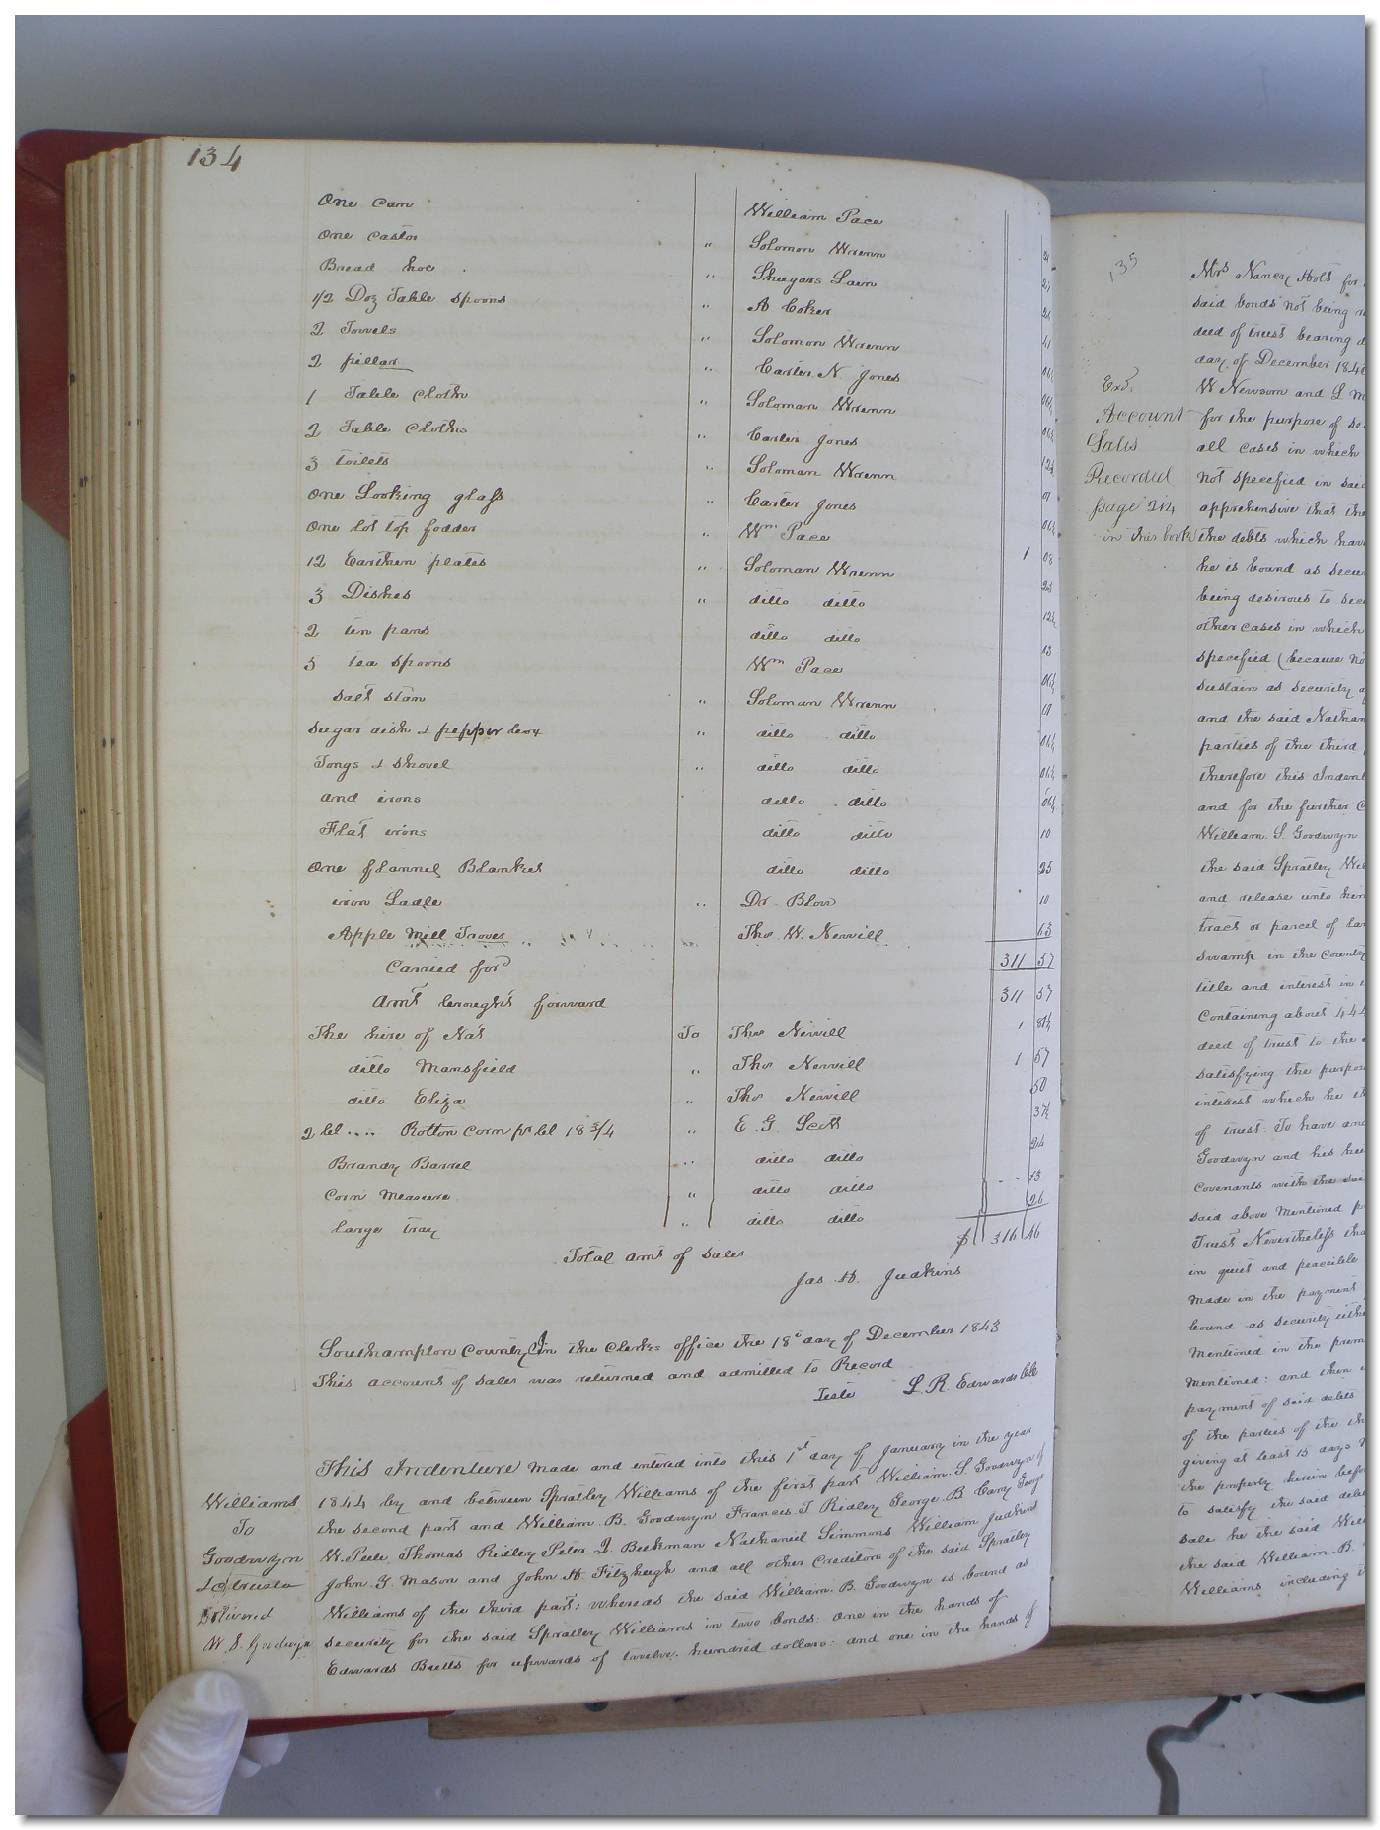 134
One can William Pace
One castor " Solomon Wrenn
Bread hoe " Shugars Lain
1/2 Doz Table spoons " A Coker
2 Towels " Solomon Wrenn
2 pillar " Carter N. Jones
1 Table cloth " Soloman Wrenn
2 Table Cloths " Carter Jones
3 toilets " Soloman Wrenn
One Looking glass " Carter Jones
One lot top fodder " Wm Pace
12 Earthen plates " Soloman Wrenn 1 08
3 Dishes " ditto ditto 25
2 tin pans ditto ditto 12½
3 tea spoons Wm Pace 13
salt stan " Soloman Wrenn 06¼
sugar dish & pepper box " ditto ditto
Tongs & shovel " ditto ditto 06¼
and irons ditto ditto 06¼
Flat irons ditto ditto 10
One flannel Blanket ditto ditto 25
iron Ladle " Dr. Blow 10
Apple Mill Troves Tho. W. Nevvill 13
Carried ford 311 57
Amt brought forward 311 57
The hire of Nat To Thos Nevvill 1 81½
ditto Mansfield " Thos Nevvill 1 57
ditto Eliza " Thos Nevvill 50
2 bl .... Rotton Corn pr bl 18 3/4 " E. G. Scott 37½
Brandy Barrel " ditto ditto 24
Corn Measure " ditto ditto 13
large tray " ditto ditto 26
Total amt of sales $ 316 46
Jas. H. Judkins
Southampton County In the Clerks office the 18th day of December 1843
This account of sales was returned and admitted to Record
Teste L. R. Edwards Clk
This Indenture made and entered into this 1st day of January in the year
1844 by and between Spratley Williams of the first part William. S. Goodwyn of
the second part and William. B. Goodwyn Frances. T Ridley George. B. Cary George
W. Peete, Thomas Ridley Peter J. Beekman Nathaniel Simmons William Judkins
John. Y. Mason and John. H. Fitzhugh and all other Creditors of the said Spratley
Williams of the third part: whereas the said William. B. Goodwyn is bound as
security for the said Spratley Williams in two bonds: one in the hands of
Edwards Butts for upwards of twelve. hundred dollars: and one in the hands of
Williams
To
Goodwyn
Delivered
W. S. Goodwyn
135
Mrs Nancy Holt for
said bonds not being
deed of trust bearing
day of December 184
W Newsom and L
for the purpose of
all cases in which
not specified in said
apprehensive that the
the debts which have
he is bound as
being desirous to
other cases in which
specified (because
sustain as security
and the said Nathan
parties of the third
therefore this
and for the further
William. S. Goodwyn
the said Spratley
and release unto
tract or parcel of
swamp in the County
title and interest in
Containing about 444
deed of trust to the
satisfying the
interest which he
of trust: To have and
Goodwyn and his
covenants with the
said above Mentioned
Trust Nevertheless that
in quiet and peacible
made in the payment
bound as security
Mentioned in the
Mentioned: and then
payment of said debts
of the parties of the
giving at least 15 days
the property herein
to satisfy the said
sale he the said
the said William. B.
Williams including
Exd.
Account
Sales
Recorded
page 214
in this book